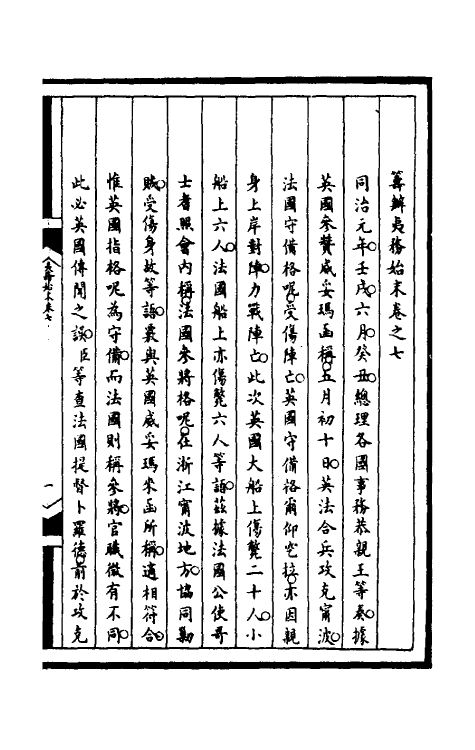 籌辦夷務始末卷之七
同治元年壬戌六月癸丑總理各國事務恭親王等奏據
英國參贊威妥瑪函稱五月初十日英法合兵攻克甯波
法國守備格呢受傷陣亡英國守備格爾仰空拉亦因親
身上岸對陣力戰陣亡此次英國大船上傷斃二十人小
船上六人法國船上亦傷斃六人等語茲據法國公使哥
士耆照會內稱法國參將格呢在浙江甯波地方協同勦
賊受傷身故等語覈與英國威妥瑪來函所稱適相符合
惟英國指格呢為守備而法國則稱參將官職微有不同
此必英國傳聞之誤臣等查法國提督卜羅德前於攻克
一